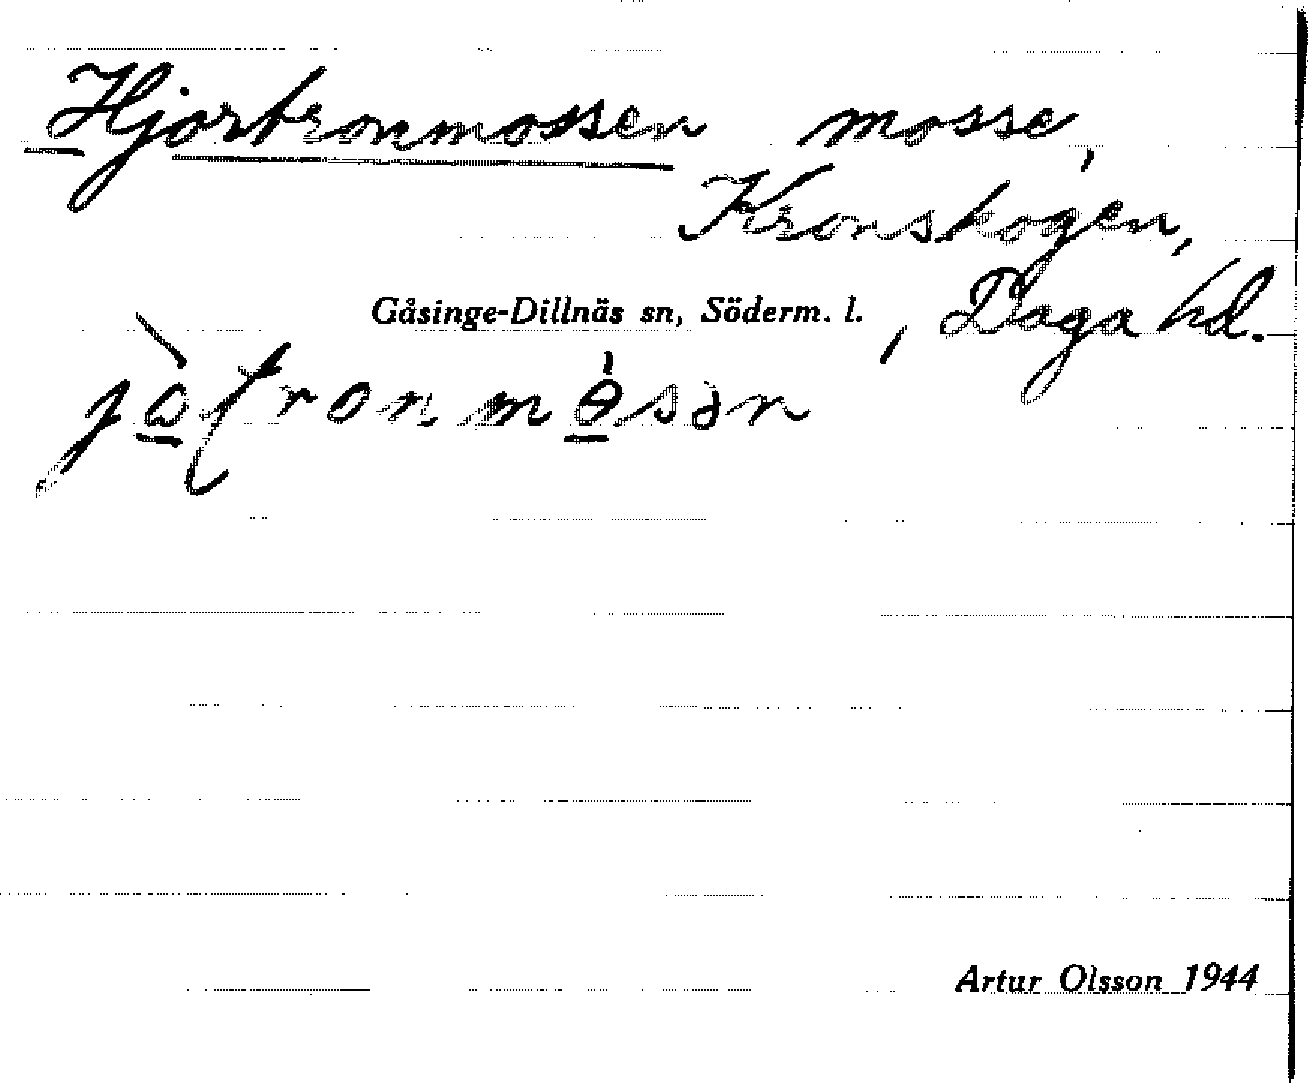 Hjortronmossen mosse,
Kronskogen,
Gåsinge-Dillnäs sn, Söderm. l., Daga hd.
Artur Olsson 1944